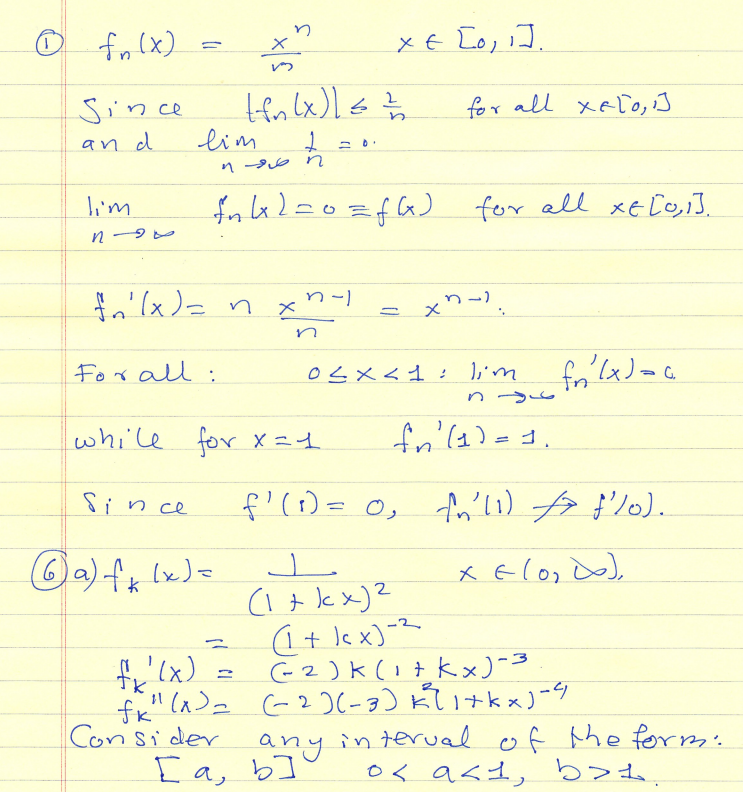 ① fₙ(x) = xⁿ/n x ∈ [0, 1].
Since |fₙ(x)| ≤ 1/n for all x∈[0,1]
and lim n→∞ 1/n = 0.
lim n→∞ fₙ(x) = 0 ≡ f(x) for all x∈[0,1].
fₙ'(x) = n xⁿ⁻¹/n = xⁿ⁻¹.
For all : 0 ≤ x < 1 : lim n→∞ fₙ'(x) = 0
while for x = 1 fₙ'(1) = 1.
Since f'(1) = 0, fₙ'(1) ↛ f'(0).
⑥ a) fₖ(x) = 1/(1 + kx)² x ∈ (0, ∞).
= (1 + kx)⁻²
fₖ'(x) = (-2) k (1 + kx)⁻³
fₖ''(x) = (-2)(-3) k² (1 + kx)⁻⁴
Consider any interval of the form:
[a, b] 0 < a < 1, b > 1.